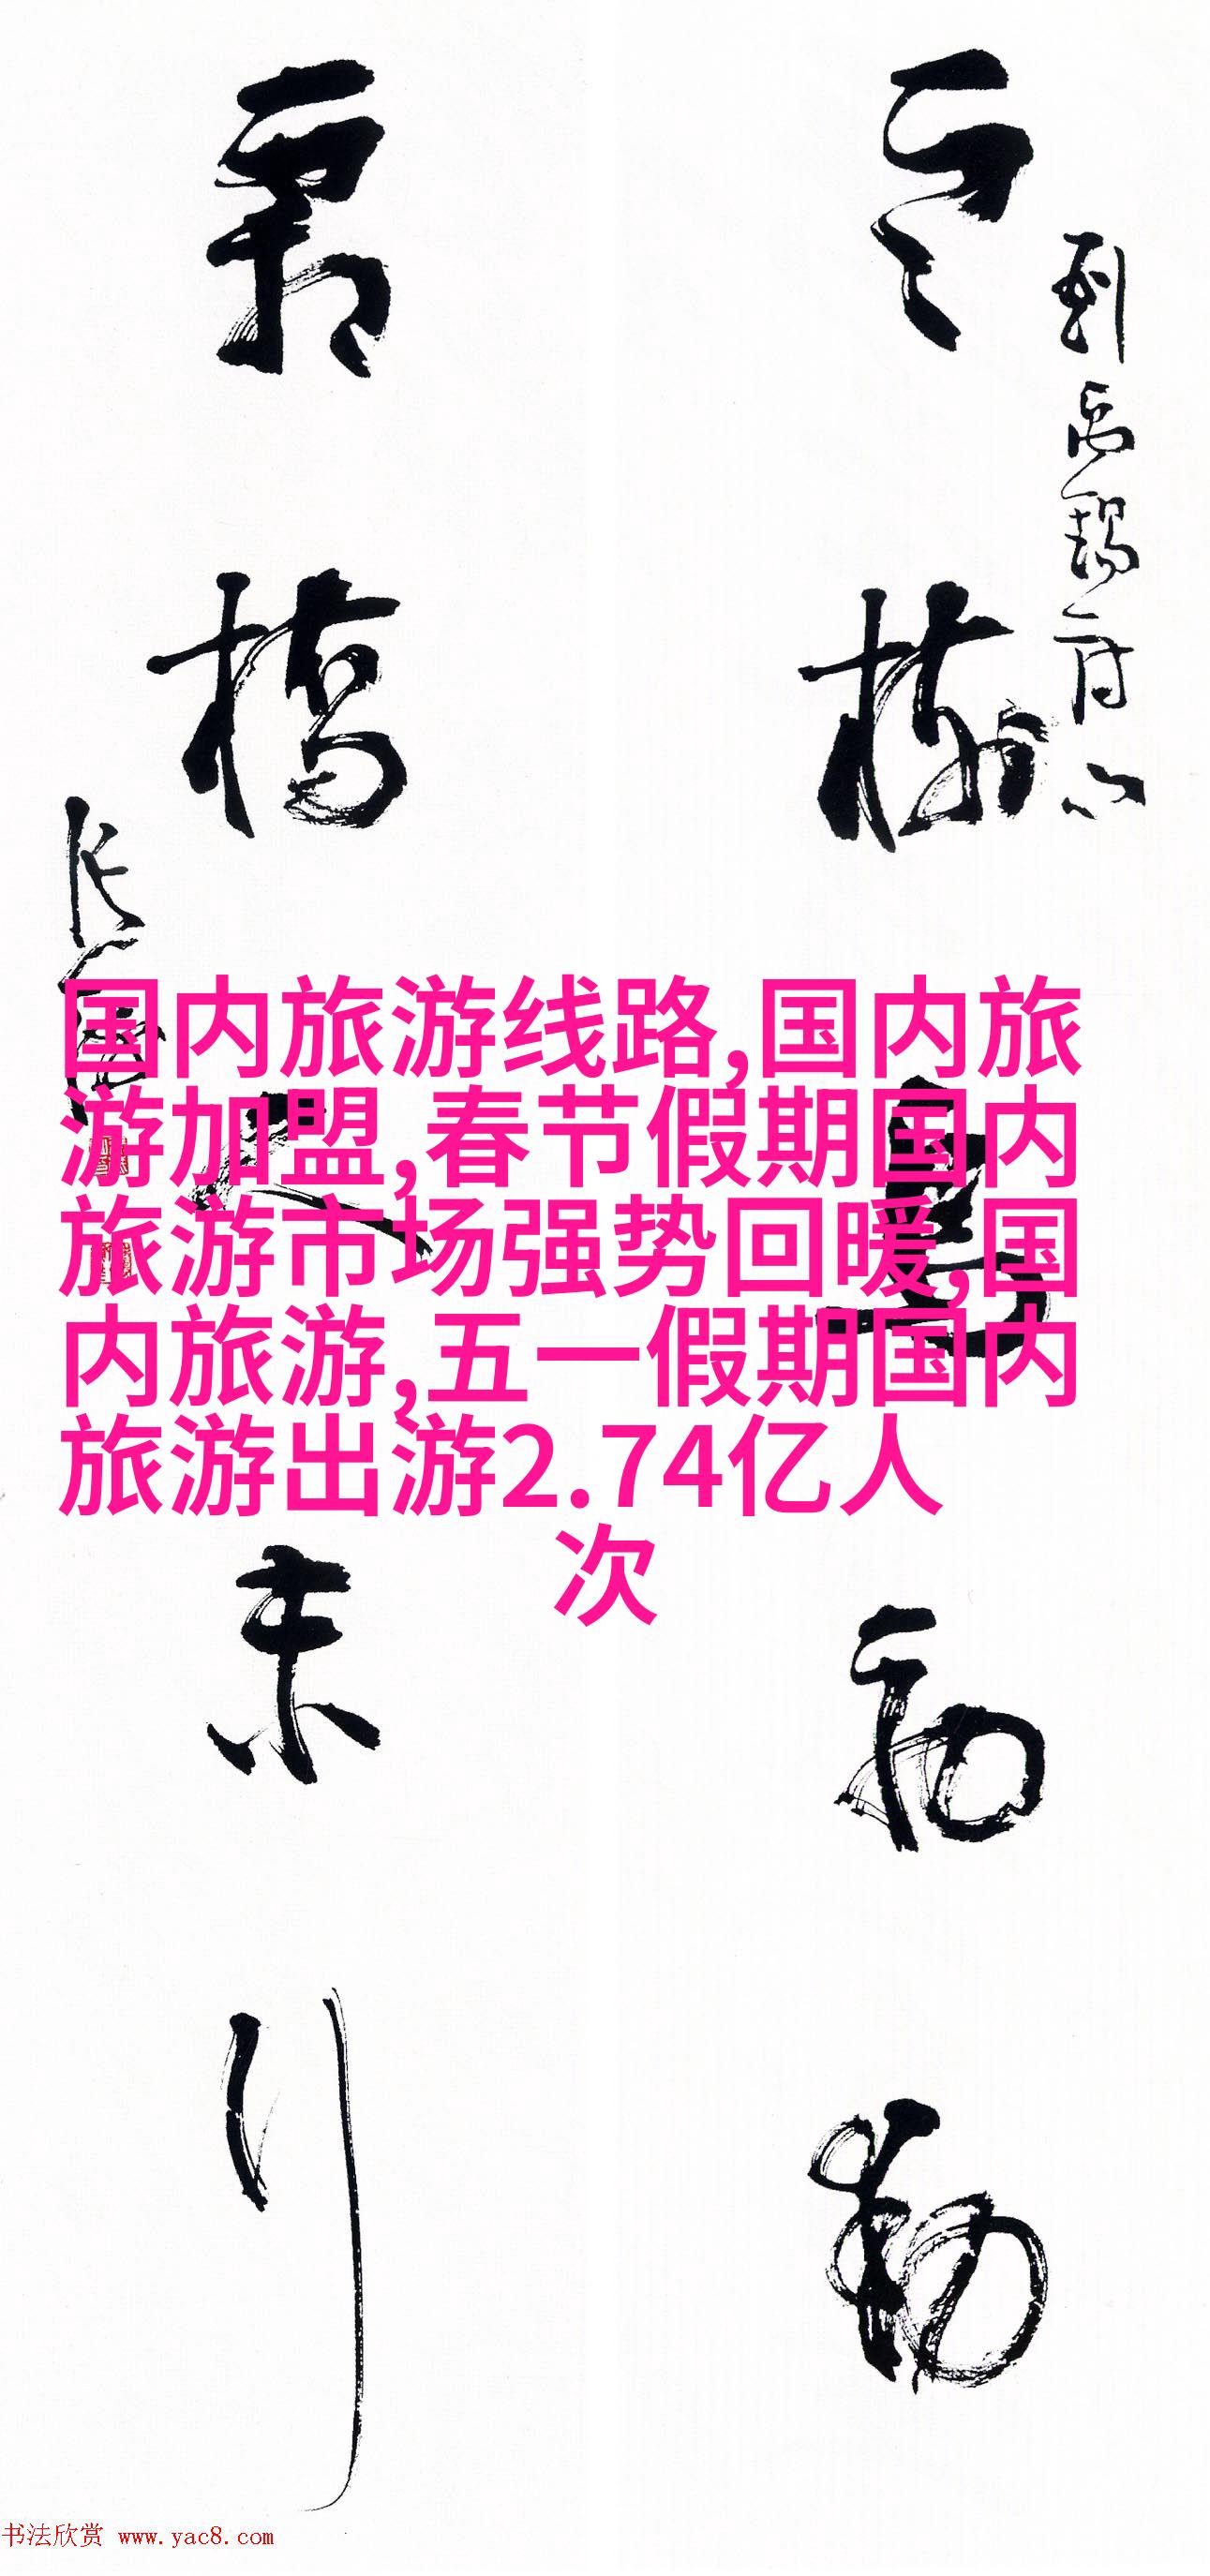 刘禹锡诗
寒树鸟初动
霜桥人未行
国内旅游线路,国内旅
游加盟,春节假期国内
旅游市场强势回暖,国
内旅游,五一假期国内
旅游出游2.74亿人
次
书法欣赏 www.yac8.com